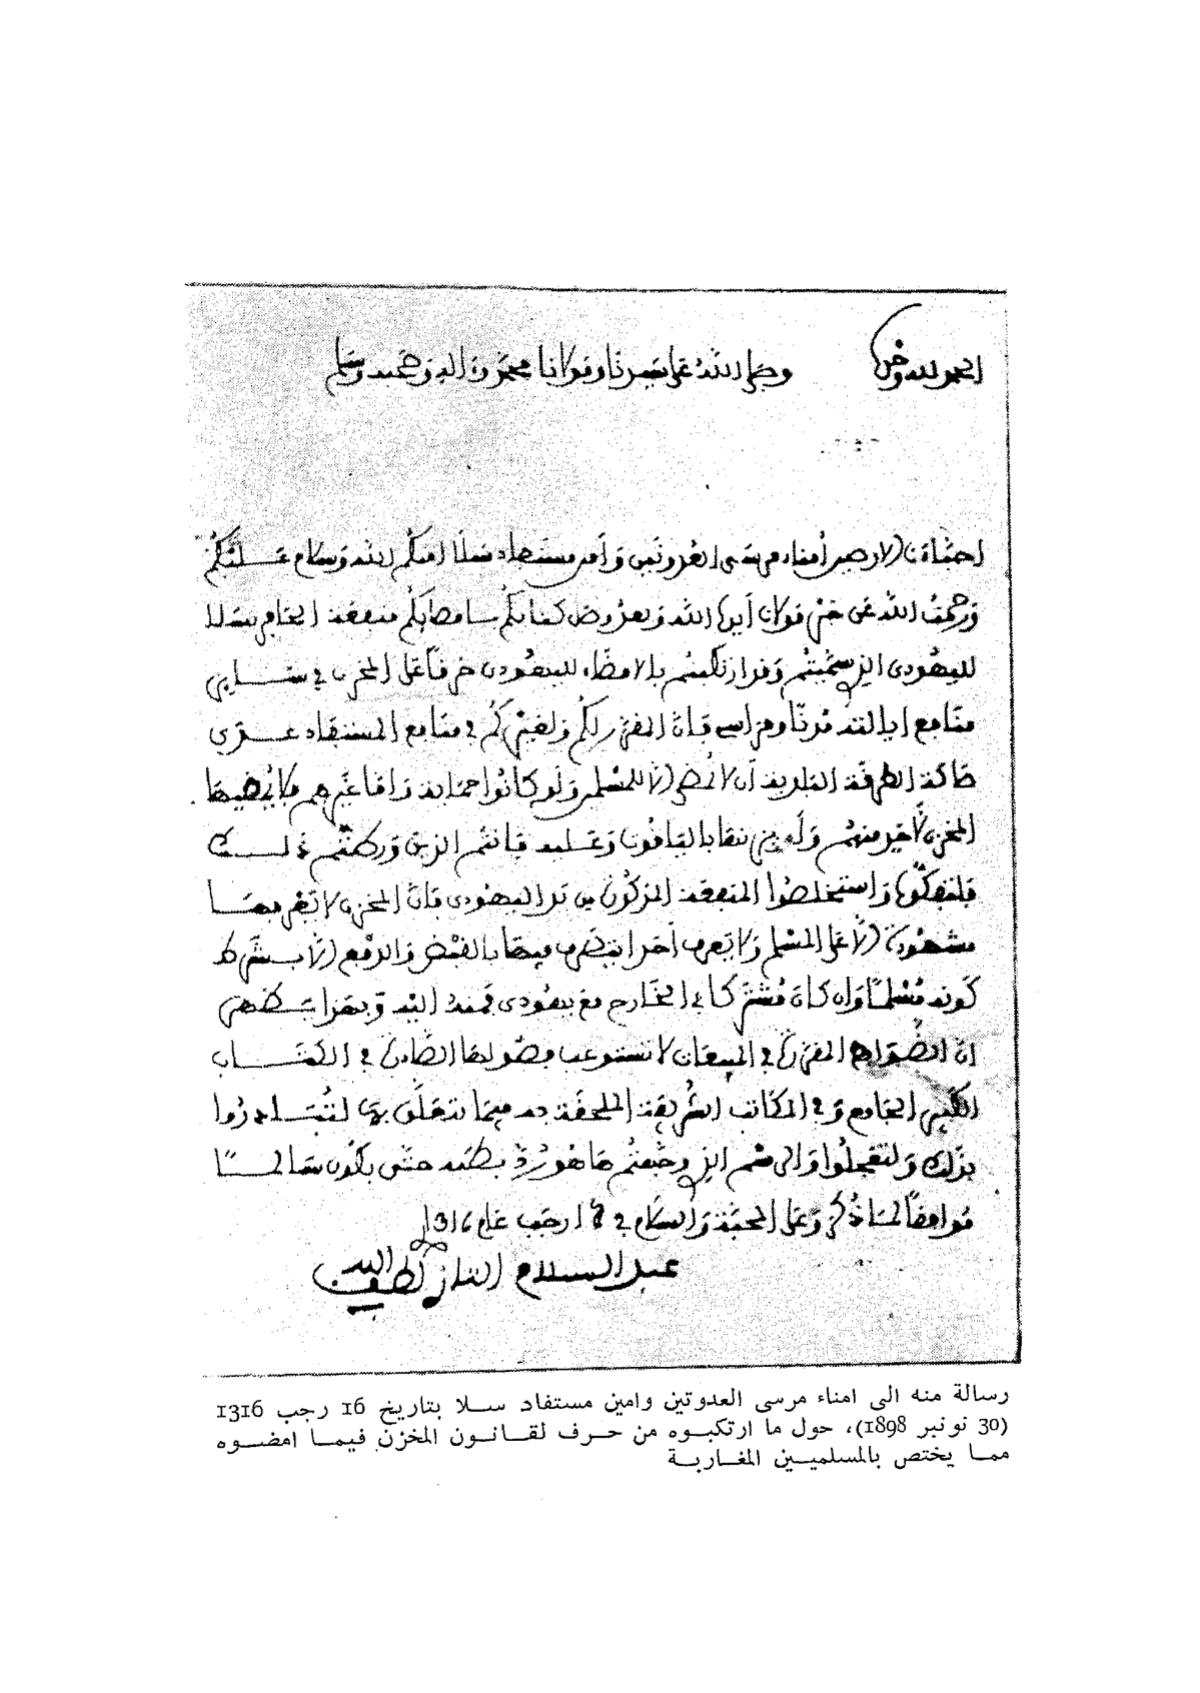 الحمد لله وحده
وصلى الله على سيدنا ومولانا محمد وءاله وصحبه وسلم
احباءنا الارضين أمناء مرسى العدوتين وأمين مستفاد سلا امنكم الله وسلام عليكم
ورحمت الله عن خير مولانا أيده الله وبعد وصل كتابكم بامضائكم منفعة الحامى بسلا
لليهودى الذي سميتم وقد ارتكبتم بالامضاء لليهودى خرقا على المخزن في سائر
منافع ايالته مدنا ومراسى فان المقرر لكم ولغيركم في منافع المستفاد عدى
طاكة الطرفة المغاربة أن لا تمضى الا للمسلم ولو كانوا حماية واما غيرهم فلا يمضيها
المخزن لأحد منهم ولم يزل بنقا بالقانون وعليه فانتم الذين وركتم ذلك
فلتفكوها واستخلصوا المنفعة المذكورة من يد اليهودى فان المخزن لا تعرفها
مشهودة الا على المسلم ولا يعرف أحدا يتصرف فيها بالقبض والدفع الا بشرط
كونه مسلما وان كان مشتركا في الخارج مع يهودى فمنه اليه وبهذا يظهر
ان الضوابط المقررة في المبيعات لا تستوعب فصولها الصادرة في الكتاب
الكبير الجامع وفي المكاتب الشريفة الملحقة به فيما يتعلق بها لتبادروا
بذلك ولتعجلوا والرسم الذي وجهتم ها هو يرد بطيه حتى يكون سالما
موافقا لما ذكر وعلى المحبة والسلام في 16 رجب عام 1316
عبد السلام التازي لطف الله به
رسالة منه الى امناء مرسى العدوتين وامين مستفاد سلا بتاريخ 16 رجب 1316
(30 نونبر 1898)، حول ما ارتكبوه من حرف لقانون المخزن فيما امضوه
مما يختص بالمسلمين المغاربة